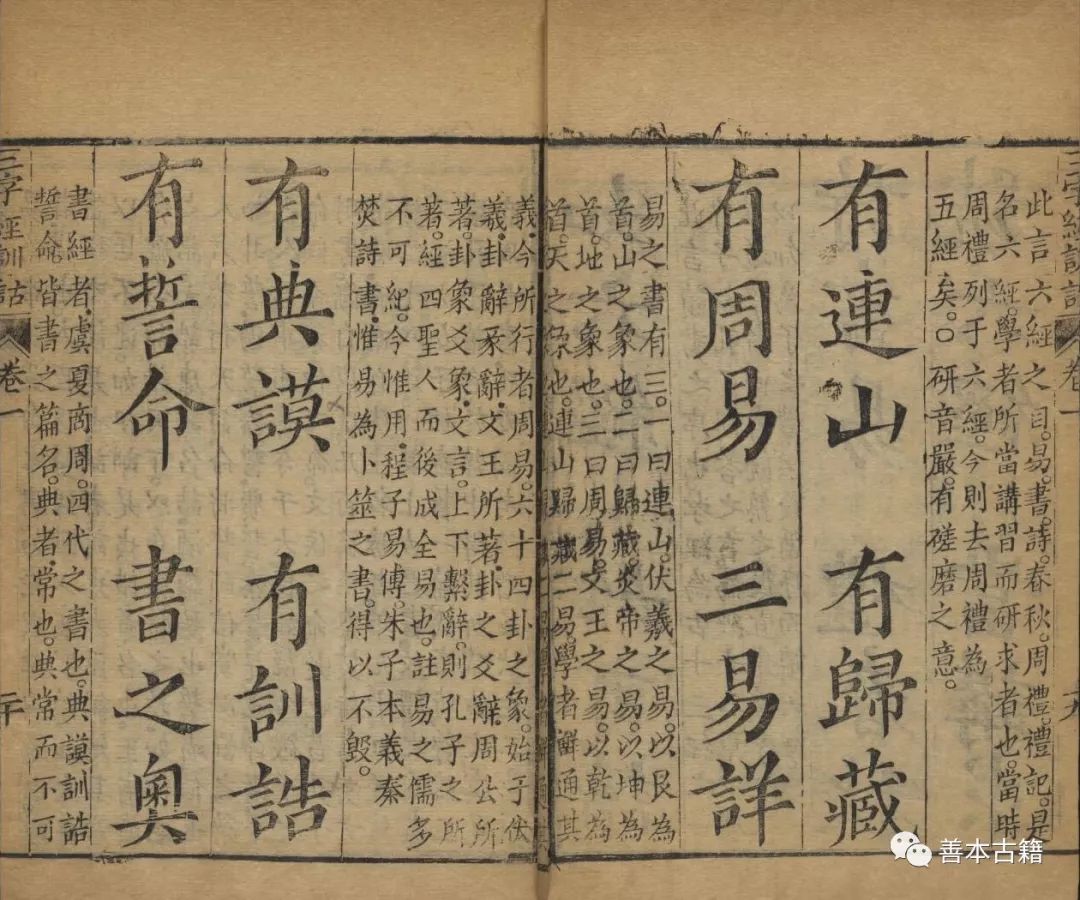 三字經訓詁
卷一
此言六經之目易書詩春秋周禮禮記是
名六經學者所當講習而研求者也當時
周禮列于六經今則去周禮為
五經矣○研音嚴有磋磨之意
有連山 有歸藏
有周易 三易詳
易之書有三一曰連山伏羲之易以艮為
首山之象也二曰歸藏炎帝之易以坤為
首地之象也三曰周易文王之易以乾為
首天之象也連山歸藏二易學者鮮通其
義今所行者周易六十四卦之象始于伏
羲卦辭彖辭文王所著卦之爻辭周公所
著卦象爻象文言上下繫辭則孔子之所
著經四聖人而後成全易也註易之儒多
不可紀今惟用程子易傳朱子本義秦
焚詩書惟易為卜筮之書得以不毀
有典謨 有訓誥
有誓命 書之奧
書經者虞夏商周四代之書也典謨訓誥
誓命皆書之篇名典者常也典常而不可
三字經訓詁
卷一
二十
善本古籍